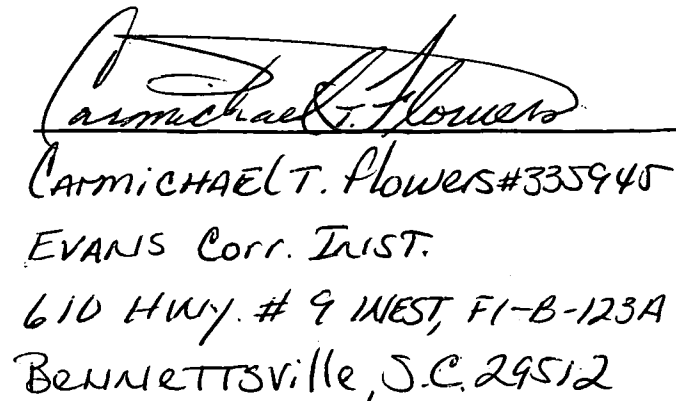 Carmichael T. Flowers
CARMICHAEL T. Flowers #335945
EVANS Corr. INST.
610 HWY. # 9 WEST, F1-B-123A
BENNETTSville, S.C. 29512